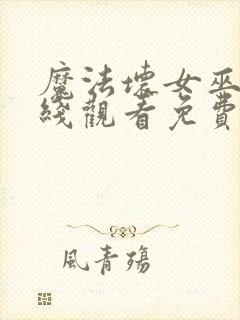 魔法壞女巫
綫觀看免費
風青殤